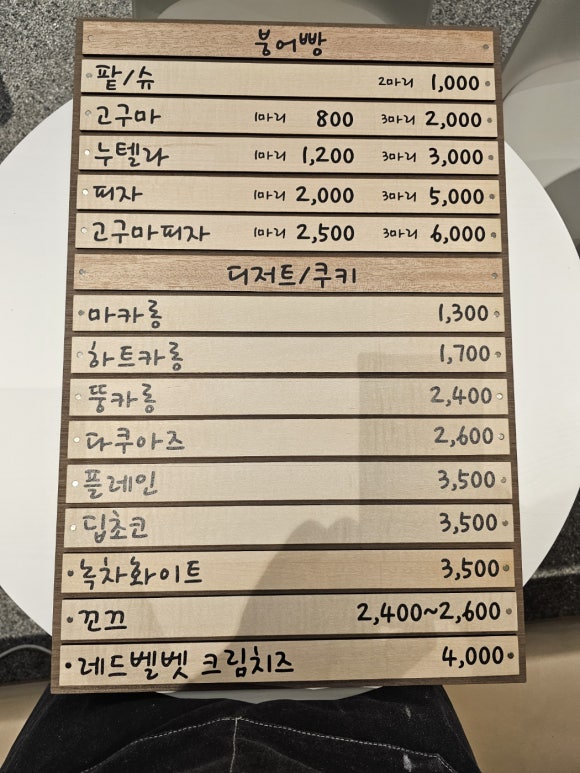 붕어빵
팥/슈 2마리 1,000
고구마 1마리 800 3마리 2,000
누텔라 1마리 1,200 3마리 3,000
피자 1마리 2,000 3마리 5,000
고구마피자 1마리 2,500 3마리 6,000
디저트/쿠키
마카롱 1,300
하트카롱 1,700
뚱카롱 2,400
다쿠아즈 2,600
플레인 3,500
딥초코 3,500
녹차화이트 3,500
꼰끄 2,400~2,600
레드벨벳 크림치즈 4,000